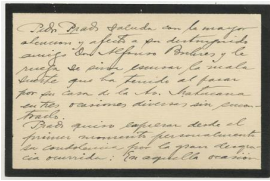 Pedro Prado saluda con la mayor
atención y afecto a su distinguido
amigo Don Alfonso Bulnes y le
ruega se sirva excusar la mala
suerte que ha tenido al pasar
por su casa de la Av.
en tres ocasiones diversas sin encon-
trarlo.
Prado quiso expresar desde el
primer momento personalmente
su condolencia por la gran desgra-
cia ocurrida. En aquella ocasión